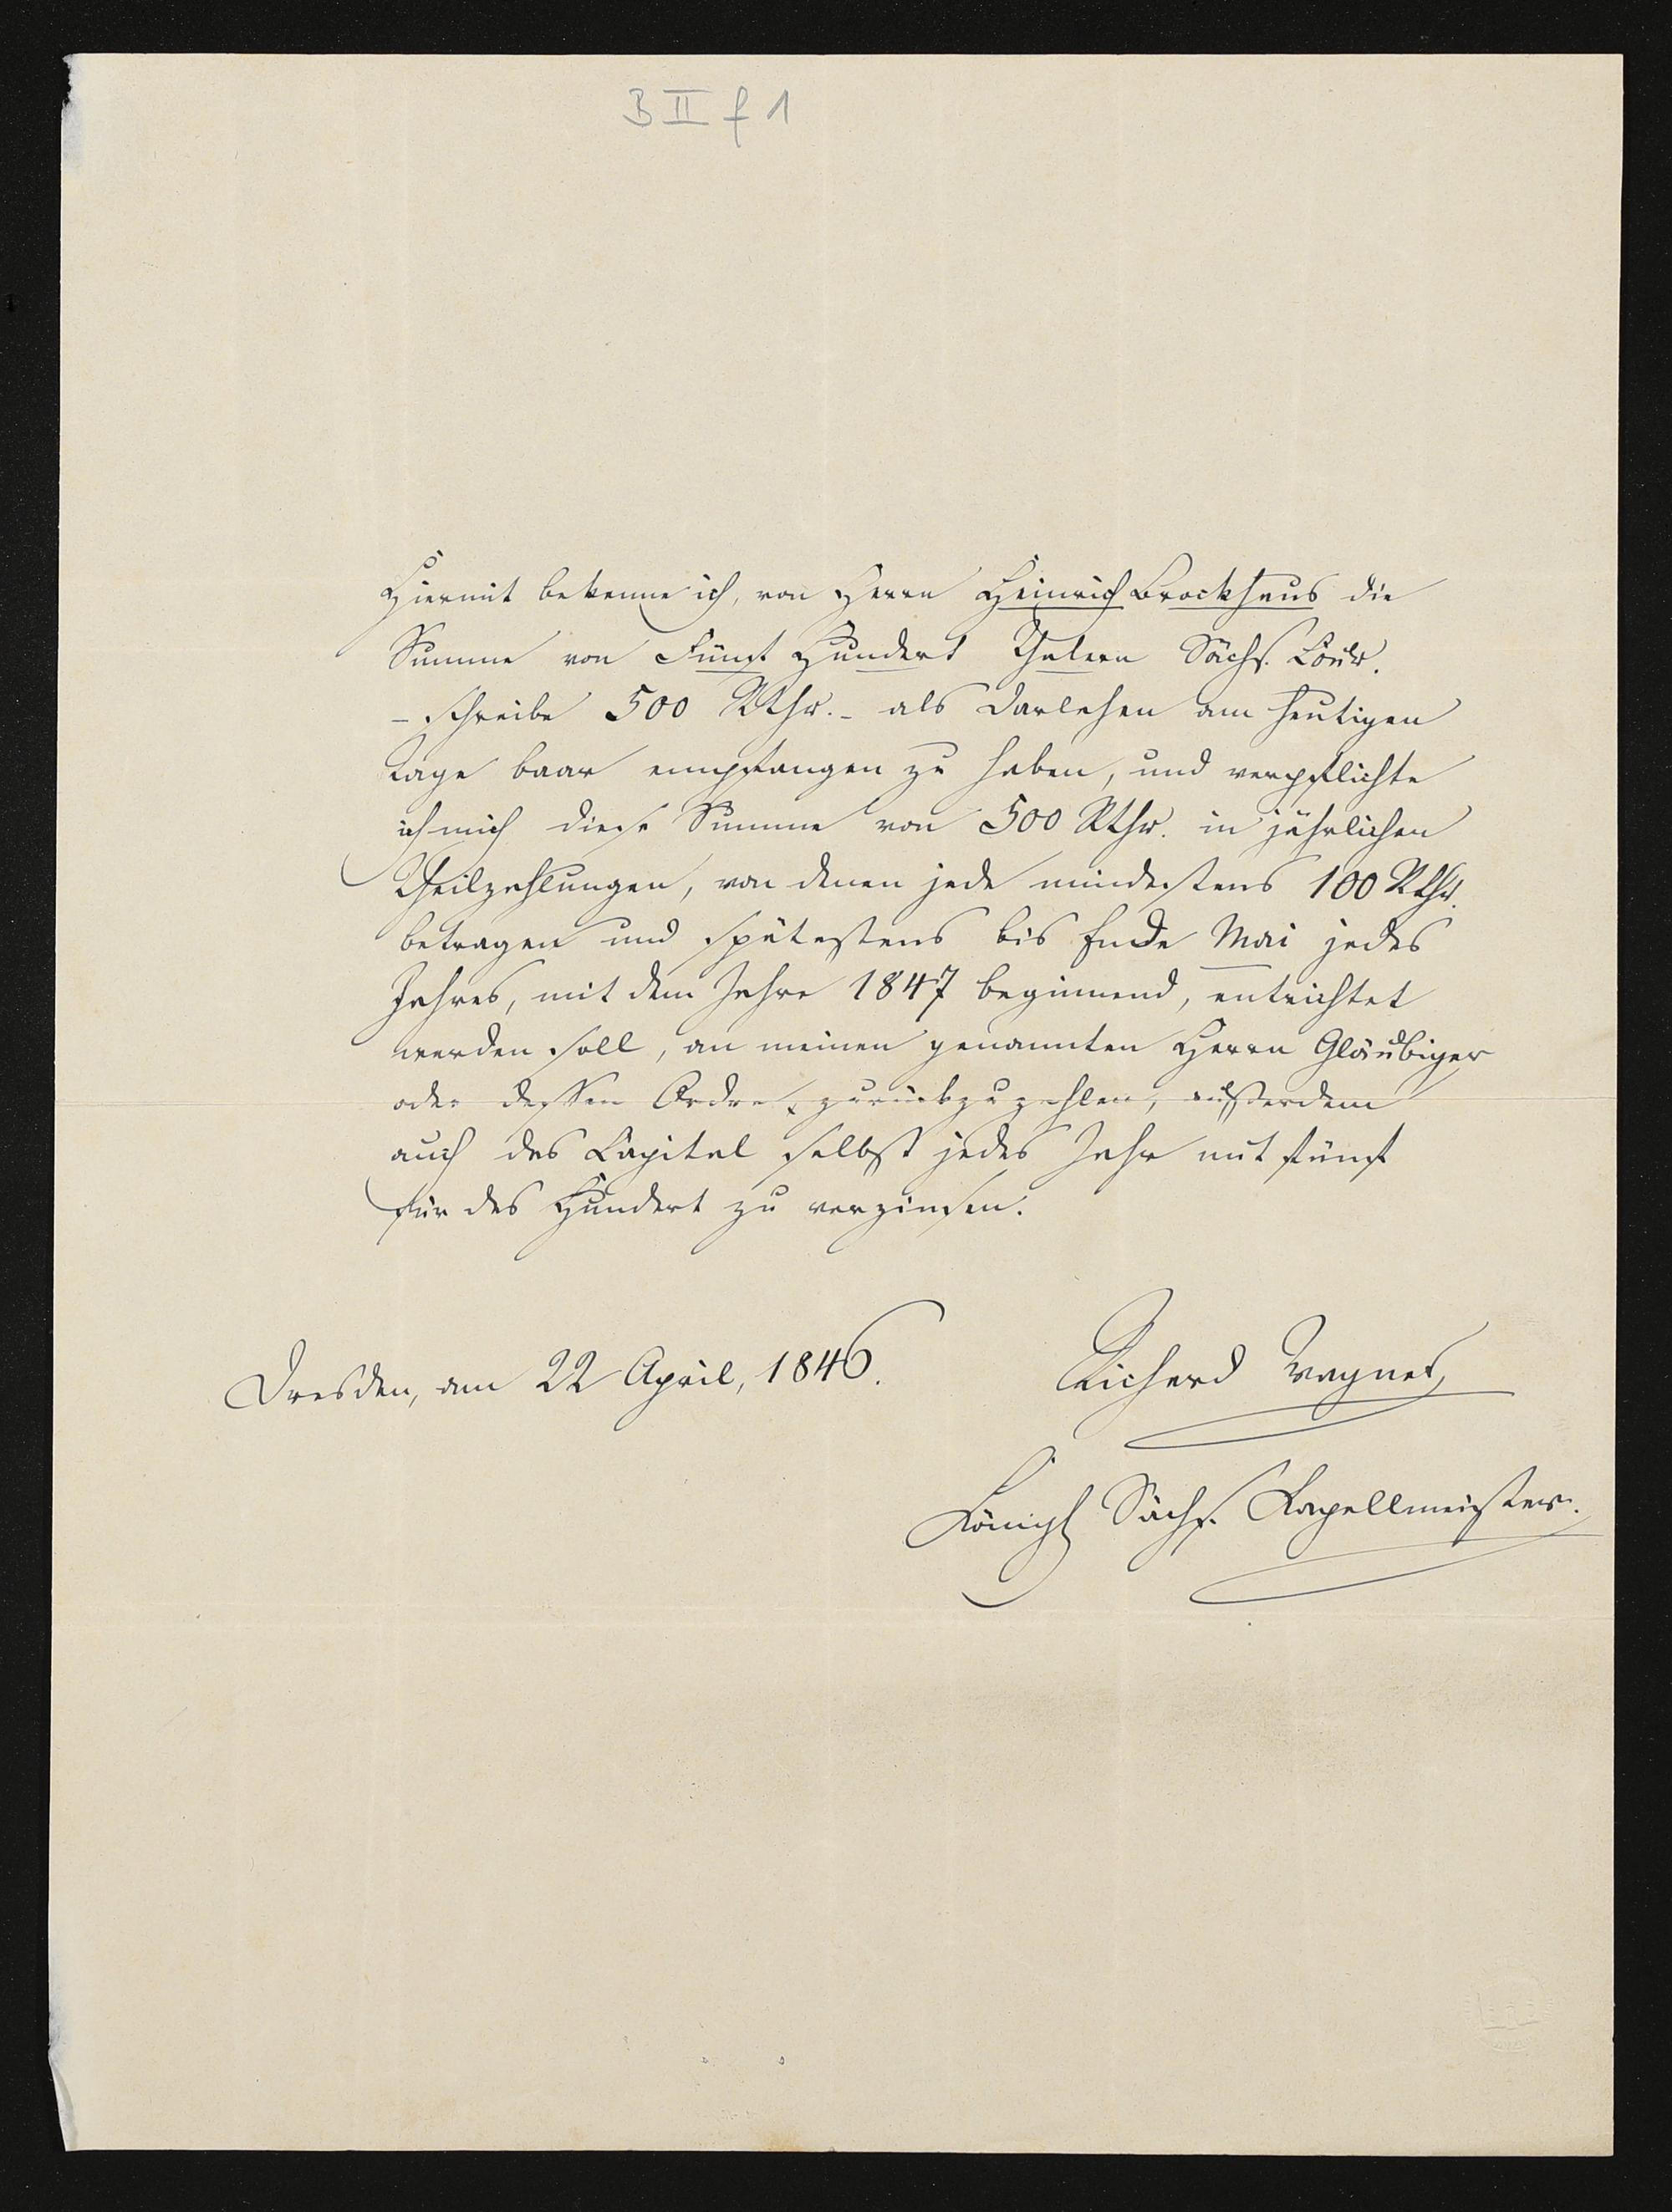 B II f 1
Hiermit bekenne ich, von Herrn Heinrich Brockhaus die
Summe von Fünf Hundert Thalern Sächs. Cour.
– schreibe 500 Rthr. – als Darlehen am heutigen
Tage baar empfangen zu haben, und verpflichte
ich mich diese Summe von 500 Rthr. in jährlichen
Theilzahlungen, von denen jede mindestens 100 Rthr.
betragen und spätestens bis Ende Mai jedes
Jahres, mit dem Jahre 1847 beginnend, entrichtet
werden soll, an meinen genannten Herrn Gläubiger
oder dessen Ordre zurückzuzahlen, außerdem
auch das Capital selbst jedes Jahr mit fünf
für das Hundert zu verzinsen.
Dresden, am 22 April, 1846.
Richard Wagner
Königl Sächs. Kapellmeister.